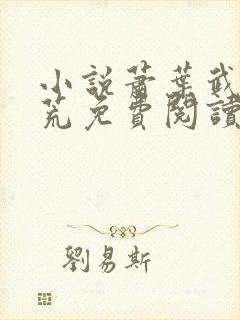 小說蕭葉武
荒免費閱讀
劉易斯